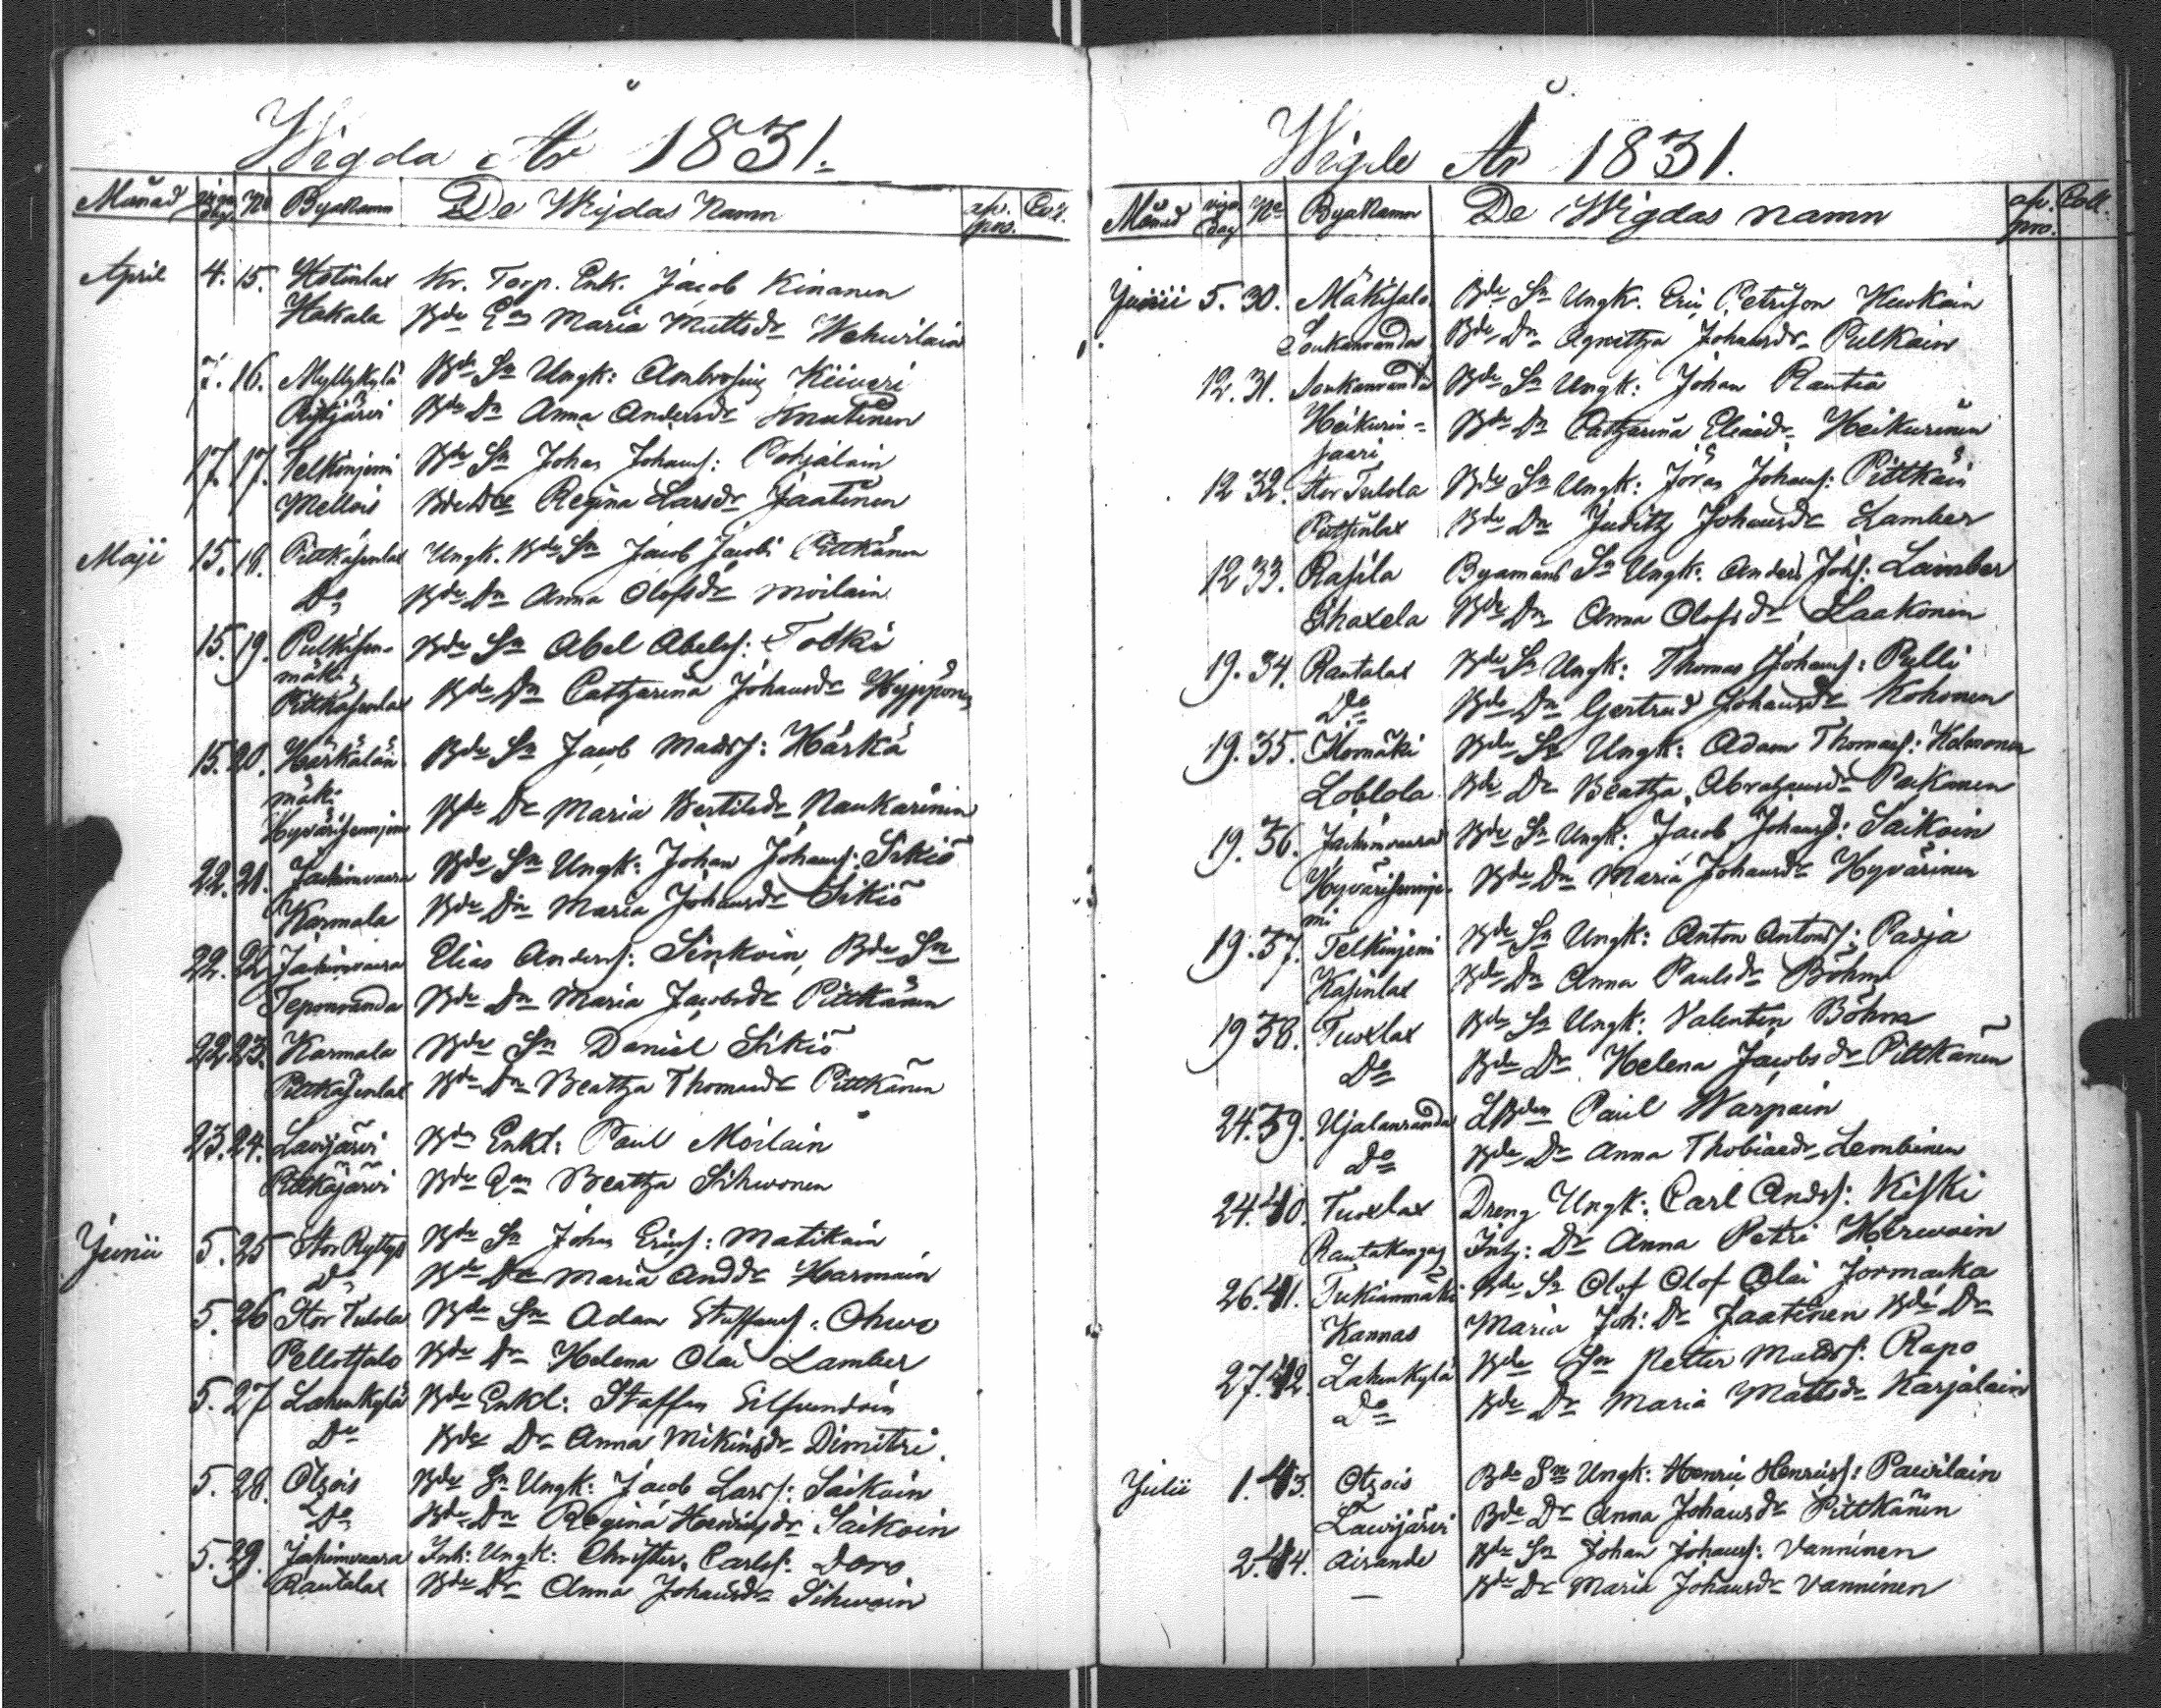 Wigda År 1831.
Månad wign. dag No Byanamn De Wigdas Namn
April 4. 15. Hotinlax Kr. Torp. Enk. Jacob Kinanen
Hakala Bde Maria Mattsdr
7. 16. Myllykylä Bde Sn Ungk: Ambrosius Kiiveri
Bde Dr Anna Andersdr Knutinen
17. 17. Telkinjemi Bde Sn Johan Johans: Pohjalain
Mellois Bde Dr Regina Larsdr Jaatinen
Maji 15. 18. Pittkäsenlax Ungk. Bde Sn Jacob Jacobs Pittkänen
Do Bde Dr Anna Olofsdr Moilain
15. 19. Pulkisen- Bde Sn Abel Abels: Tolki
mäki
Pittkäsenlax Bde Dr Catharina Johansdr Hyppönen
15. 20. Härkälän Bde Sn Jacob Madss: Härkä
mäki
Hyvärisenniemi Bde Dr Maria Bertilsdr Naukarinin
22. 21. Jaakimvaara Bde Sn Ungk: Johan Johans: Sikiö
Karmala Bde Dr Maria Johansdr Sikiö
22. 22. Jaakimvaara Elias Anders: Sinkoin, Bde Sn
Teponranda Bde Dr Maria Jacobsdr Pittkänen
22 23. Karmala Bde Sn Daniel Sikiö
Pittkäsenlax Bde Dr Beatha Thomasdr Pittkänen
23. 24. Lavijärvi Bde Enkl: Paul Moilain
Pitkäjärvi Bde Beatha Sihwonen
Junii 5. 25 Stor Ryttys Bde Sn Johan Erics: Matikain
Do Bde Dr Maria Andsdr Harmain
5. 26 Stor Tulola Bde Sn Adam Staffans: Ohwo
Pellotsalo Bde Dr Helena Olai Lamber
5. 27 Lahenkylä Bde Enkl: Staffan Silfvendoin
Do Bde Dr Anna Dimitri.
5. 28. Otsois Bde Sn Ungk: Jacob Larss: Saikoin
Do Bde Dr Regina Henricsdr Saikoin
5. 29. Jaakimvaara Inh: Ungk: Christer Carls:
Rantalax Bde Dr Anna Johansdr Sihwoin
Wigde År 1831.
Månad wign dag No Byanamn De Wigdas namn
Junii 5. 30. Mäkisalo Bde Sn Ungk. Eric Petrison
Soukanrandas Bde Dr Agnetha Johansdr Pulkain
12. 31. Soukanranda Bde Sn Ungk: Johan Rautia
Heikurin- Bde Dr Catharina Eliaedr Heikurinen
saari
12 32. Stor Tulola Bde Sn Ungk: Jöran Johans: Pittkäin
Putsinlax Bde Dr Judith Johansdr Lamber
12 33. Rasila Byamans Sn Ungk: Anders Johs: Lamber
Bde Dr Anna Olofsdr Laakonin
19. 34. Rantalax Bde Sn Ungk: Thomas Johans: Pulli
Do Bde Dr Gertrud Johansdr Kohonen
19. 35. Bde Sn Ungk: Adam Thomas: Kolmonen
Loblola Bde Dr Beatha Abrahamsdr Paikanen
19. 36. Jaakimvaara Bde Sn Ungk: Jacob Johans: Saikoin
Hyvärisennie- Bde Dr Maria Johansdr Hyvärinen
mi
19. 37. Telkinjemi Bde Sn Ungk: Anton Antons: Parja
Kasinlax Bde Dr Anna Paulsdr Böhm
19 38. Tuoxlax Bde Sn Ungk: Valentin Böhm
Do Bde Dr Helena Jacobsdr Pittkänen
24. 39. Ujalanranda LBden Paul Warpain
Do Bde Dr Anna Thobiaedr Lembinen
24. 40. Tuoxlax Dreng Ungk: Carl Ands: Kiski
Rautakangas Inh: Dr Anna Petri Hirwoin
26. 41. Tukianmäki Bde Sn Olof Olof Olai Jormaka
Kannas Maria Joh: Dr Jaatinen Bde Dr
27. 42. Lahenkylä Bde Sn Petter Matss: Rapo
Do Bde Dr Maria Mattsdr Karjalain
Julii 1. 43. Otsois Bde Sn Ungk: Henric Henrics: Pawilain
Lawijärvi Bde Dr Anna Johansdr Pittkänen
2. 44. Airande Bde Sn Johan Johans: Vanninen
— Bde Dr Maria Johansdr Vanninen